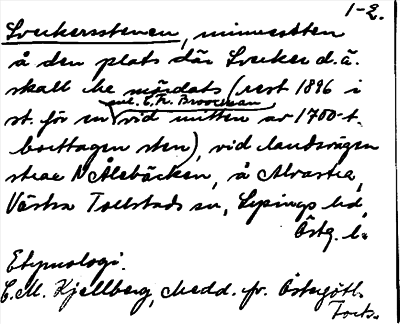 1-2.
Sverkersstenen, minnessten
å den plats där Sverker d. ä.
skall ha mördats (rest 1896 i
enl. C. Fr. Broocman
st. för en vid mitten av 1700-t.
borttagen sten), vid landsvägen
strax N Ålebäcken, å Alvastra,
Västra Tollstads sn, Lysings hd,
Östg. l.
Etymologi.
C. M. Kjellberg, Medd. fr. Östergötl.
Forts.